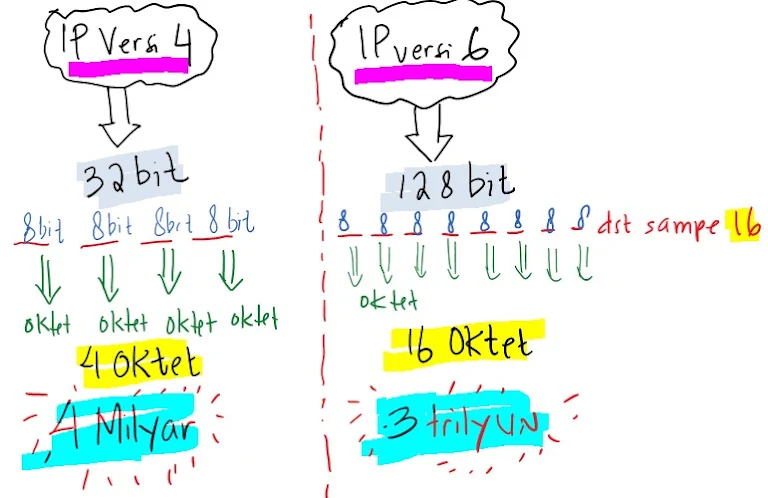 IP Versi 4
32 bit
8bit 8bit 8bit 8 bit
oktet oktet oktet oktet
4 Oktet
4 Milyar
IP versi 6
128 bit
8 8 8 8 8 8 8 8 dst sampe 16
oktet
16 Oktet
3 trilyUN